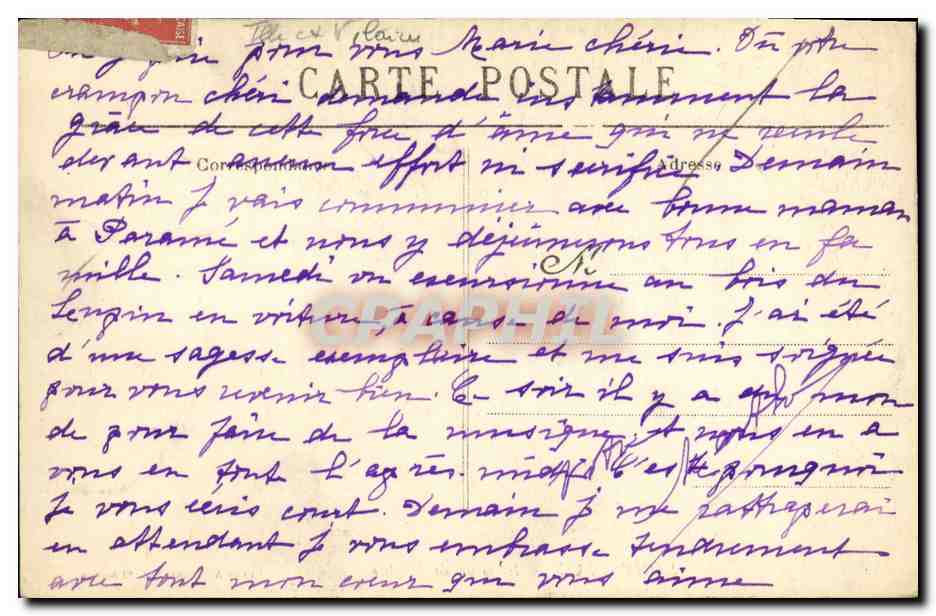 Ille et Vilaine
pour vous Marie chérie. Du votre
CARTE POSTALE
crampon chéri demande instamment la
grâce de cette force d'âme qui ne recule
Correspondance
Adresse
devant aucun effort ni sacrifice Demain
matin je vais communier avec bonne maman
à Paramé et nous y déjeunerons tous en fa
mille. Samedi on excursionne au bois du
en voiture, à cause de moi. J'ai été
d'une sagesse exemplaire et me suis soignée
pour vous revenir bien. Ce soir il y a du mon
de pour faire de la musique et nous en a
vons en tout l'après-midi C'est pourquoi
Je vous écris court. Demain je me rattraperai
en attendant je vous embrasse tendrement
avec tout mon coeur qui vous aime
GRAPHIL